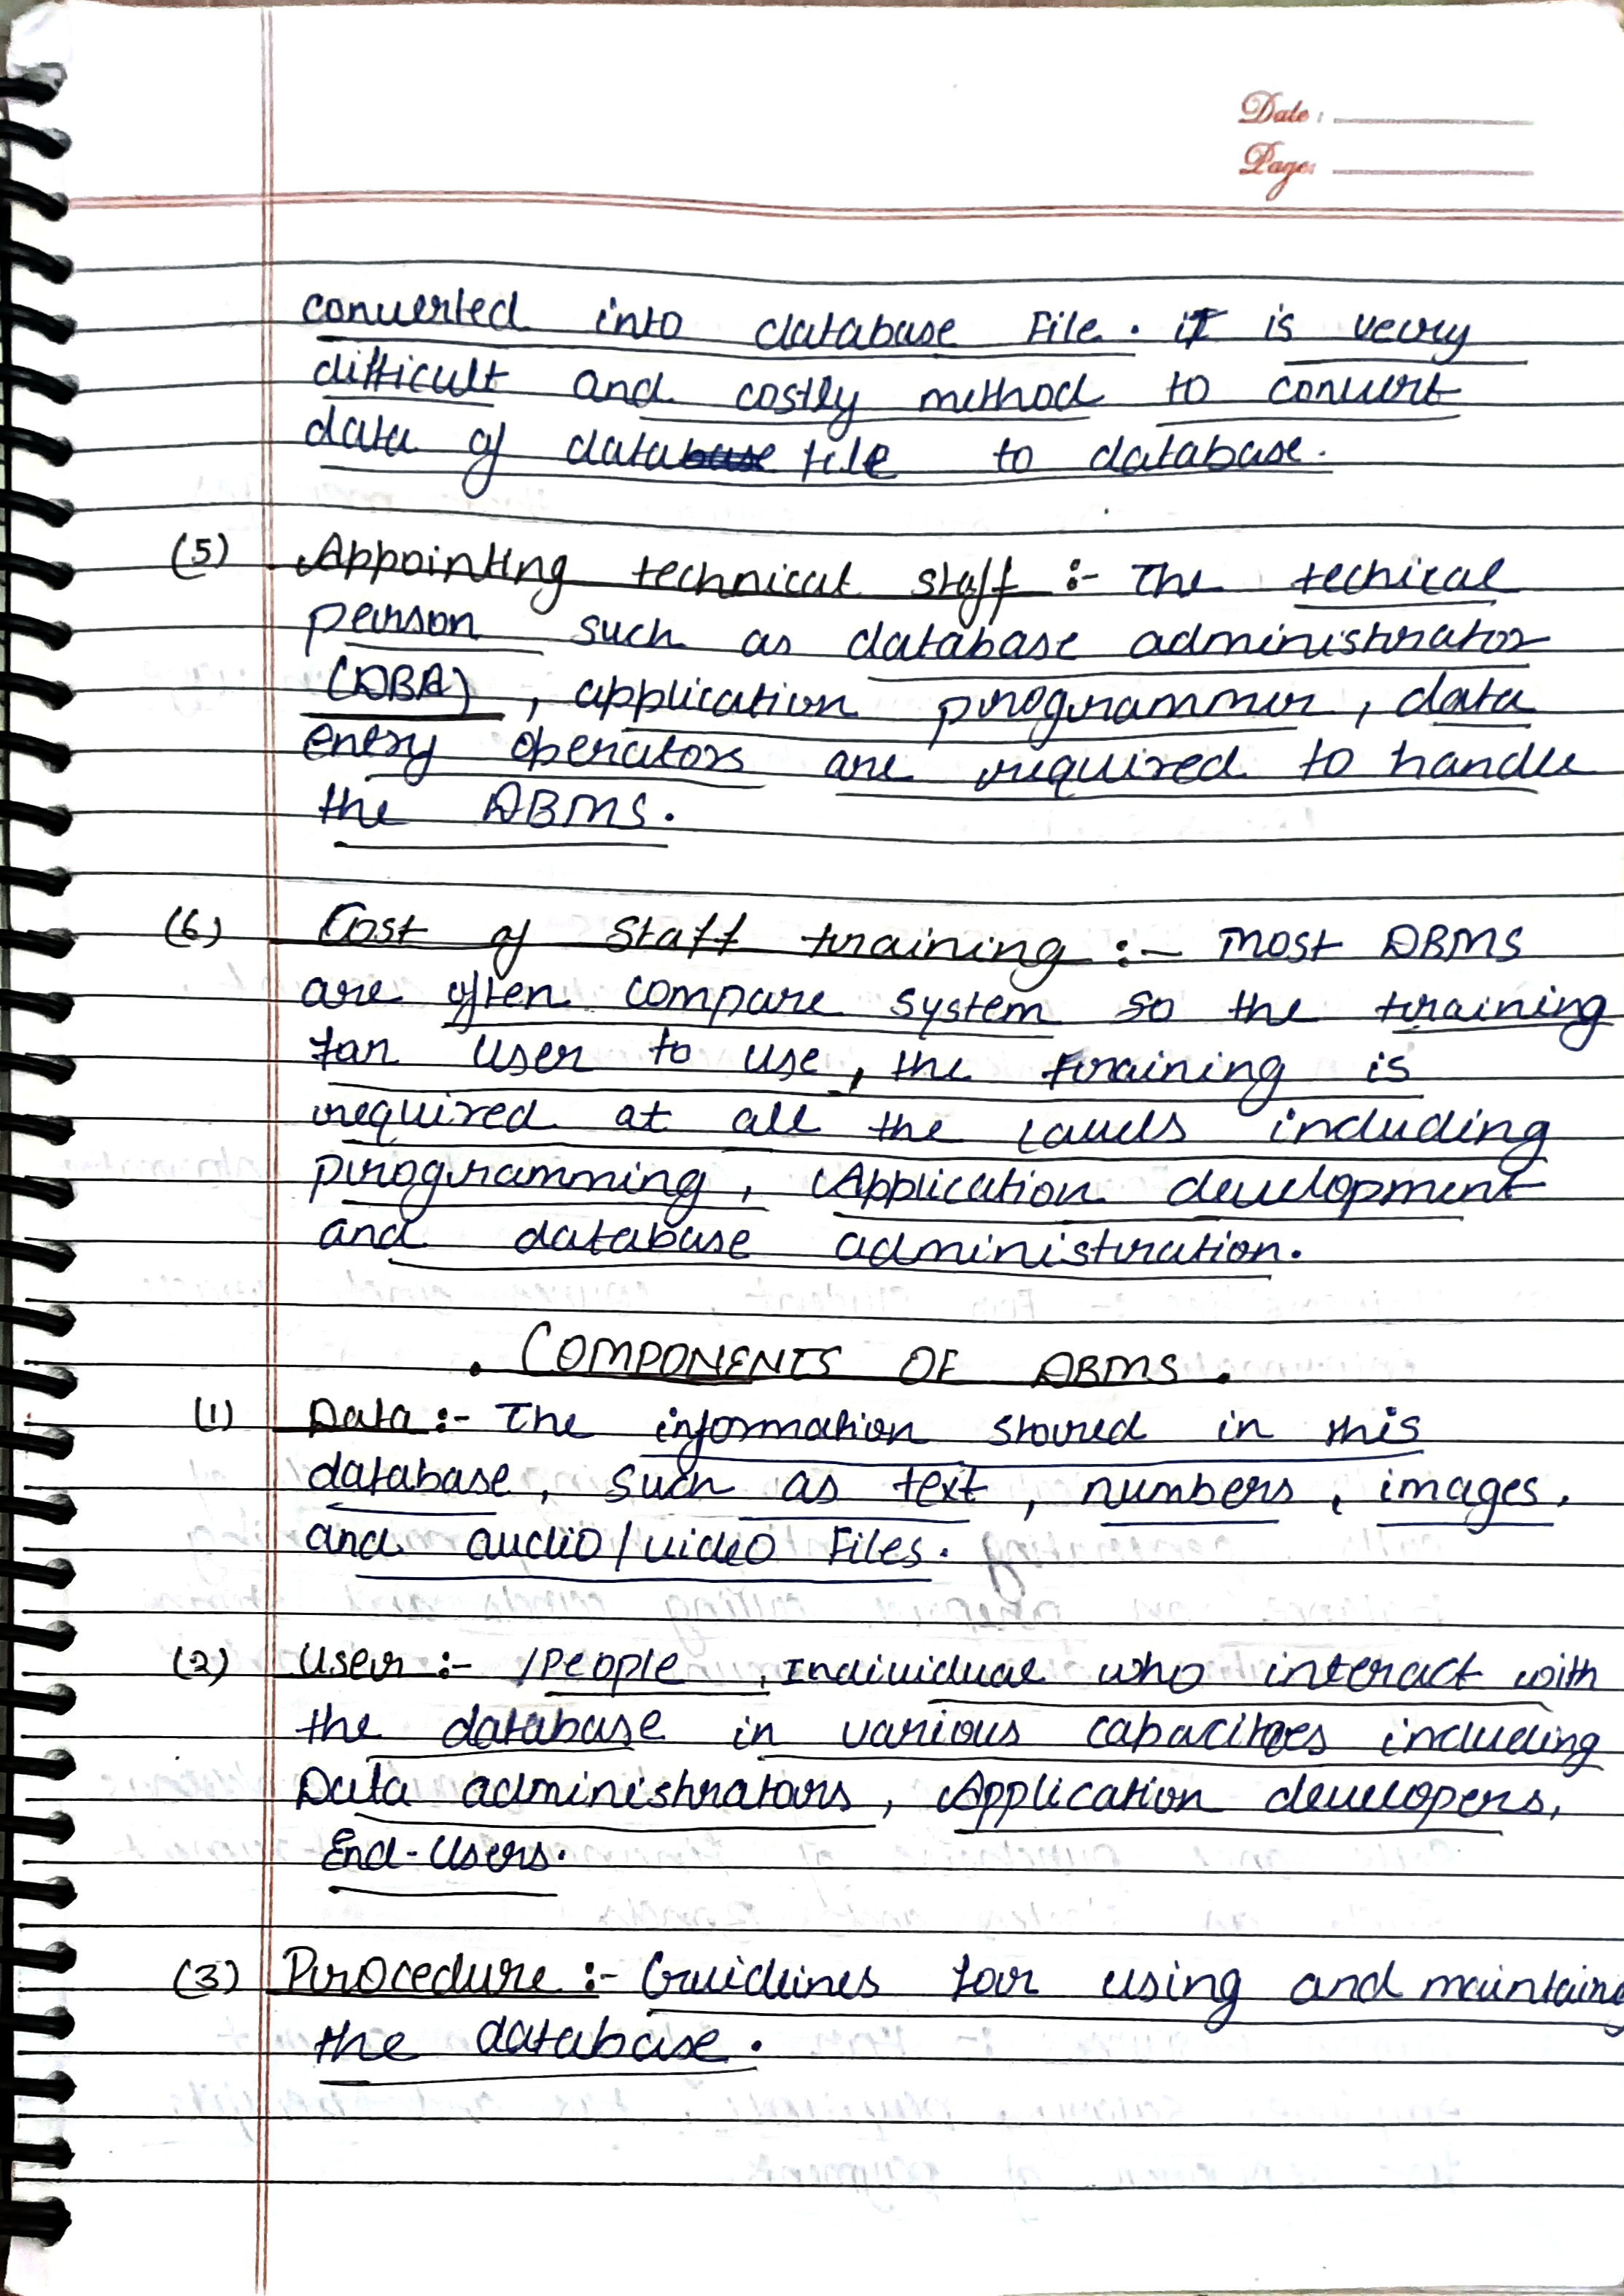 Date:
Page:
converted into database File. it is very
difficult and costly method to convert
data of database file to database.
(5) Appointing technical staff :- The techical
person such as database administrator
(DBA), application programmer, data
entry operators are required to handle
the DBMS.
(6) Cost of Staff training :- Most DBMS
are often compare system so the training
for user to use, the training is
required at all the levels including
programming, Application development
and database administration.
. COMPONENTS OF DBMS .
(1) Data :- The information stored in this
database, such as text, numbers, images,
and audio/video Files.
(2) User :- /People, Individual who interact with
the database in various capacities including
Data administrators, Application developers,
End-Users.
(3) Procedure :- Guidlines for using and maintaing
the database.